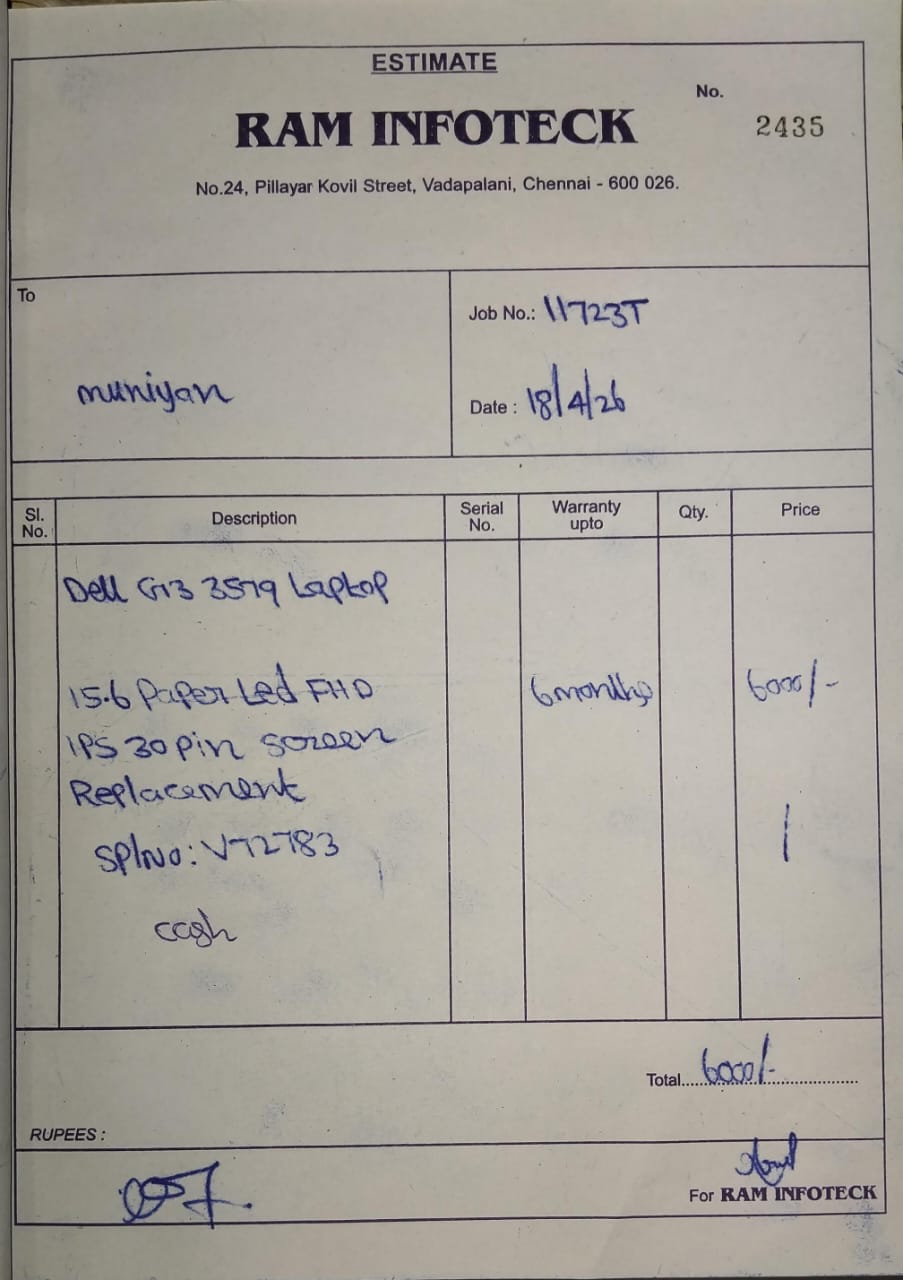 ESTIMATE
No.
RAM INFOTECK
2435
No.24, Pillayar Kovil Street, Vadapalani, Chennai - 600 026.
To
muniyan
Job No.: 11723T
Date : 18/4/26
Sl. No.
Description
Serial No.
Warranty upto
Qty.
Price
Dell G3 3579 Laptop
15.6 Paper Led FHD
6 months
6000/-
IPS 30 pin screen
Replacement
SP/No: V72783
cash
Total 6000/-
RUPEES :
For RAM INFOTECK